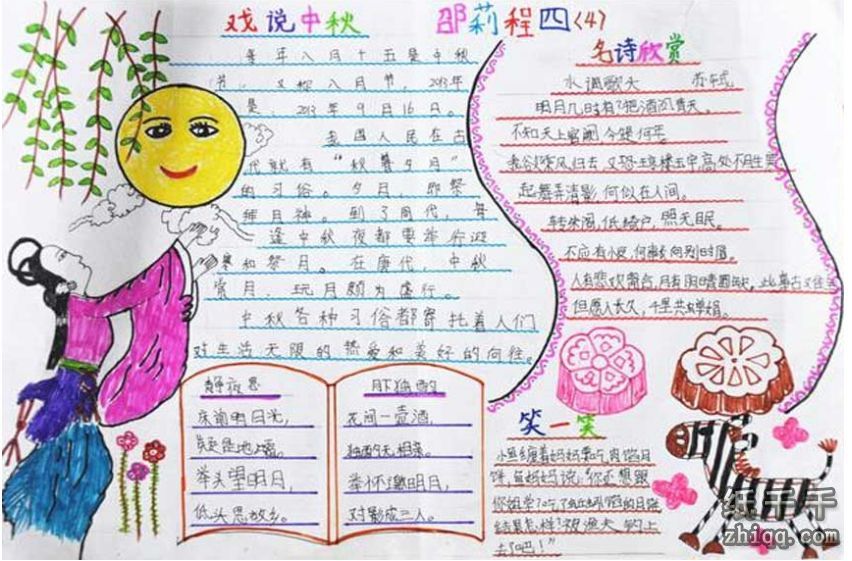 戏说中秋
邵莉程四〈4〉
每年八月十五是中秋
节，又称八月节，2013年
是，2013年9月16日。
我国人民在古
代就有“秋暮夕月”
的习俗。夕月，即祭
拜月神。到了周代，每
逢中秋夜都要举行迎
寒和祭月。在唐代，中秋
赏月、玩月颇为盛行。
中秋各种习俗都寄托着人们
对生活无限的热爱和美好的向往。
名诗欣赏
水调歌头 苏轼。
明月几时有？把酒问青天。
不知天上宫阙，今夕是何年。
我欲乘风归去，又恐琼楼玉宇，高处不胜寒
起舞弄清影，何似在人间。
转朱阁，低绮户，照无眠。
不应有恨，何事长向别时圆。
人有悲欢离合，月有阴晴圆缺，此事古难全
但愿人长久，千里共婵娟。
静夜思
床前明月光，
疑是地上霜。
举头望明月，
低头思故乡。
月下独酌
花间一壶酒，
独酌无相亲。
举杯邀明月，
对影成三人。
笑一笑
小鱼缠着妈妈要吃肉馅月
饼，鱼妈妈说：“你还想跟
你姐学？吃了蚯蚓馅的月饼
结果怎样？被渔夫钓上
去了吧！”
纸千千
zhiqq.com